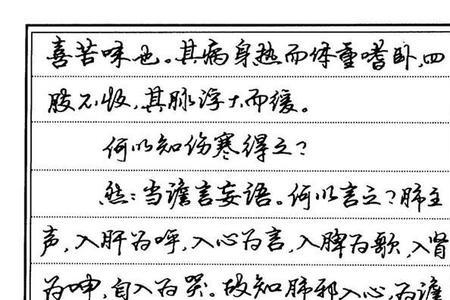 喜苦味也。其病身热而体重嗜卧,四
肢不收,其脉浮大而缓。
何以知伤寒得之?
然:当谵言妄语。何以言之?肺主
声,入肝为呼,入心为言,入脾为歌,入肾
为呻,自入为哭。故知肺邪入心,为谵